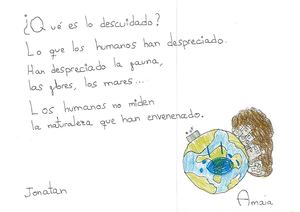 ¿Qué es lo descuidado?
Lo que los humanos han despreciado.
Han despreciado la fauna,
las flores, los mares...
Los humanos no miden
la naturaleza que han envenenado.
Jonatan
Amaia